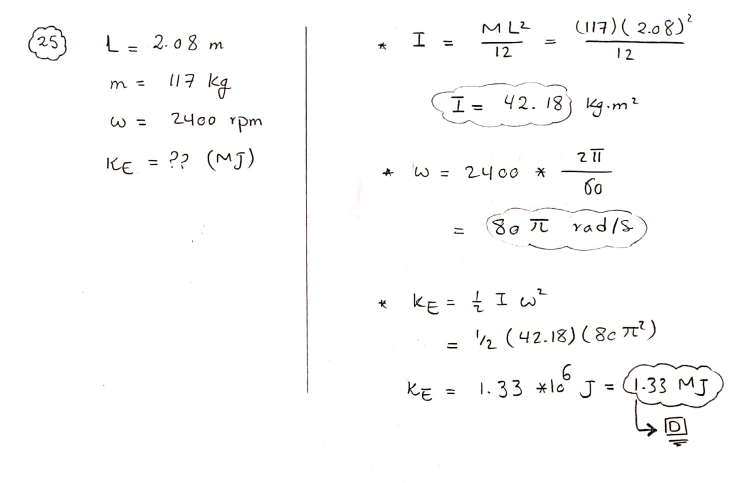 25
L = 2.08 m
m = 117 kg
ω = 2400 rpm
KE = ?? (MJ)
* I = ML²/12 = (117)(2.08)²/12
I = 42.18 kg.m²
* ω = 2400 * 2π/60
= 80 π rad/s
* KE = ½ I ω²
= 1/2 (42.18)(80 π²)
KE = 1.33 *10⁶ J = 1.33 MJ
→ D